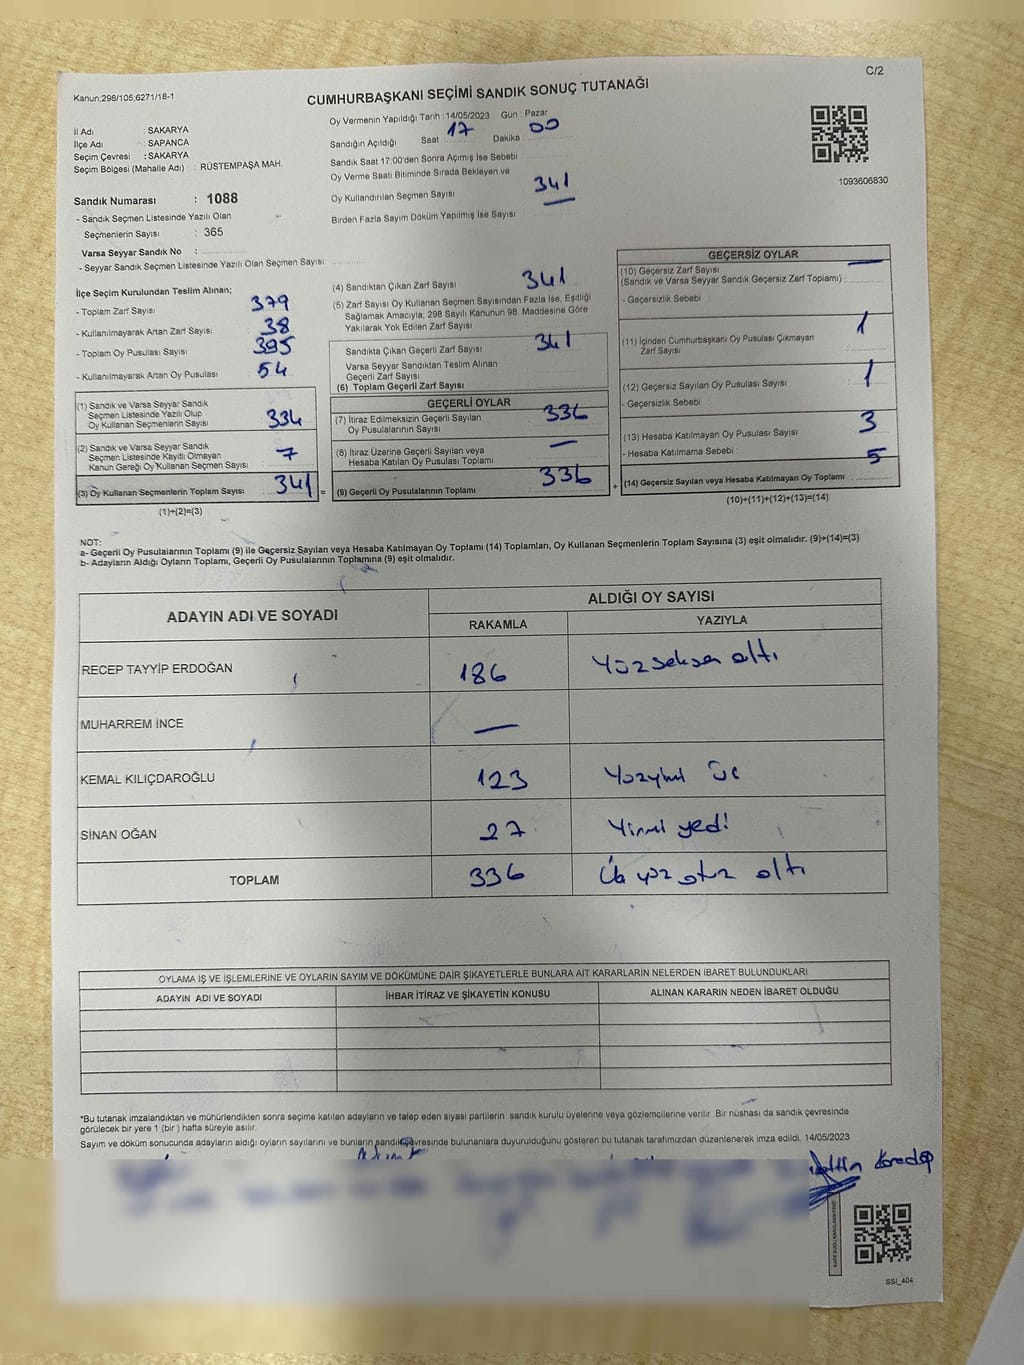 C/2
Kanun;298/105;6271/18-1
CUMHURBAŞKANI SEÇİMİ SANDIK SONUÇ TUTANAĞI
İl Adı : SAKARYA
İlçe Adı : SAPANCA
Seçim Çevresi : SAKARYA
Seçim Bölgesi (Mahalle Adı) : RÜSTEMPAŞA MAH.
Sandık Numarası : 1088
- Sandık Seçmen Listesinde Yazılı Olan
Seçmenlerin Sayısı : 365
Varsa Seyyar Sandık No :
- Seyyar Sandık Seçmen Listesinde Yazılı Olan Seçmen Sayısı:
Oy Vermenin Yapıldığı Tarih : 14/05/2023 Gün : Pazar
Sandığın Açıldığı Saat 17 Dakika 00
Sandık Saat 17:00'den Sonra Açımış İse Sebebi
Oy Verme Saati Bitiminde Sırada Bekleyen ve
Oy Kullandırılan Seçmen Sayısı 341
Birden Fazla Sayım Döküm Yapılmış İse Sayısı —
1093606830
İlçe Seçim Kurulundan Teslim Alınan;
- Toplam Zarf Sayısı: 379
- Kullanılmayarak Artan Zarf Sayısı: 38
- Toplam Oy Pusulası Sayısı : 395
- Kullanılmayarak Artan Oy Pusulası : 54
(1) Sandık ve Varsa Seyyar Sandık
Seçmen Listesinde Yazılı Olup
Oy Kullanan Seçmenlerin Sayısı : 334
(2) Sandık ve Varsa Seyyar Sandık
Seçmen Listesinde Kayıtlı Olmayan
Kanun Gereği Oy Kullanan Seçmen Sayısı : 7
(3) Oy Kullanan Seçmenlerin Toplam Sayısı : 341 =
(1)+(2)=(3)
(4) Sandıktan Çıkan Zarf Sayısı : 341
(5) Zarf Sayısı Oy Kullanan Seçmen Sayısından Fazla İse, Eşitliği
Sağlamak Amacıyla, 298 Sayılı Kanunun 98. Maddesine Göre
Yakılarak Yok Edilen Zarf Sayısı :
Sandıkta Çıkan Geçerli Zarf Sayısı : 341
Varsa Seyyar Sandıktan Teslim Alınan
Geçerli Zarf Sayısı:
(6) Toplam Geçerli Zarf Sayısı :
GEÇERLİ OYLAR
(7) İtiraz Edilmeksizin Geçerli Sayılan
Oy Pusulalarının Sayısı : 336
(8) İtiraz Üzerine Geçerli Sayılan veya
Hesaba Katılan Oy Pusulası Toplamı : —
(9) Geçerli Oy Pusulalarının Toplamı : 336 +
GEÇERSİZ OYLAR
(10) Geçersiz Zarf Sayısı —
(Sandık ve Varsa Seyyar Sandık Geçersiz Zarf Toplamı) :
- Geçersizlik Sebebi :
(11) İçinden Cumhurbaşkanı Oy Pusulası Çıkmayan
Zarf Sayısı : 1
(12) Geçersiz Sayılan Oy Pusulası Sayısı : 1
- Geçersizlik Sebebi :
(13) Hesaba Katılmayan Oy Pusulası Sayısı : 3
- Hesaba Katılmama Sebebi :
(14) Geçersiz Sayılan veya Hesaba Katılmayan Oy Toplamı : 5
(10)+(11)+(12)+(13)=(14)
NOT:
a- Geçerli Oy Pusulalarının Toplamı (9) ile Geçersiz Sayılan veya Hesaba Katılmayan Oy Toplamı (14) Toplamları, Oy Kullanan Seçmenlerin Toplam Sayısına (3) eşit olmalıdır. (9)+(14)=(3)
b- Adayların Aldığı Oyların Toplamı, Geçerli Oy Pusulalarının Toplamına (9) eşit olmalıdır.
ADAYIN ADI VE SOYADI ALDIĞI OY SAYISI
RAKAMLA YAZIYLA
RECEP TAYYİP ERDOĞAN 186 Yüzseksen altı
MUHARREM İNCE —
KEMAL KILIÇDAROĞLU 123 Yüzyirmi üç
SİNAN OĞAN 27 Yirmi yedi
TOPLAM 336 Üç yüz otuz altı
OYLAMA İŞ VE İŞLEMLERİNE VE OYLARIN SAYIM VE DÖKÜMÜNE DAİR ŞİKAYETLERLE BUNLARA AİT KARARLARIN NELERDEN İBARET BULUNDUKLARI
ADAYIN ADI VE SOYADI İHBAR İTİRAZ VE ŞİKAYETİN KONUSU ALINAN KARARIN NEDEN İBARET OLDUĞU
*Bu tutanak imzalandıktan ve mühürlendikten sonra seçime katılan adayların ve talep eden siyasi partilerin sandık kurulu üyelerine veya gözlemcilerine verilir. Bir nüshası da sandık çevresinde
görülecek bir yere 1 (bir ) hafta süreyle asılır.
Sayım ve döküm sonucunda adayların aldığı oyların sayılarını ve bunların sandık çevresinde bulunanlara duyurulduğunu gösteren bu tutanak tarafımızdan düzenlenerek imza edildi. 14/05/2023
SSI_404